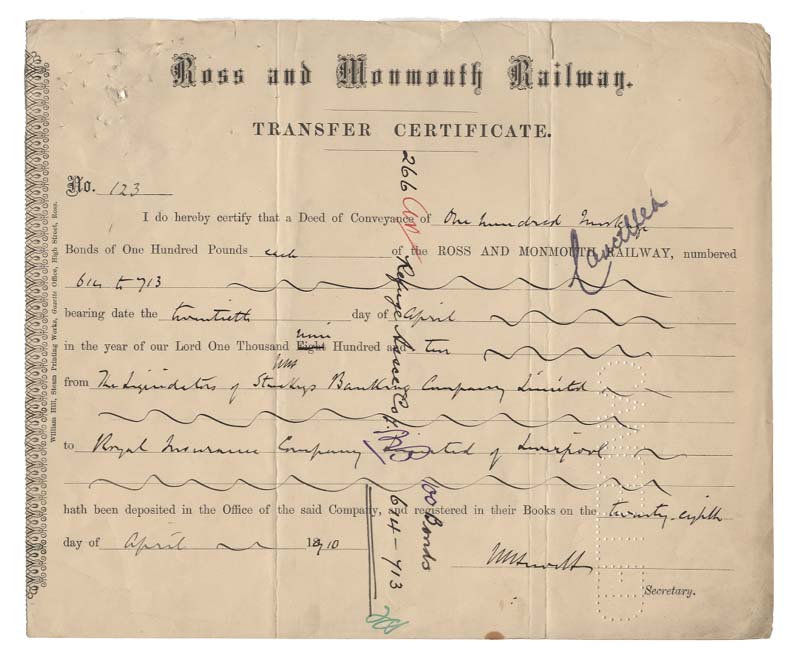 Ross and Monmouth Railway.
TRANSFER CERTIFICATE.
No. 123
I do hereby certify that a Deed of Conveyance of One hundred
Bonds of One Hundred Pounds each of the ROSS AND MONMOUTH RAILWAY, numbered
614 to 713
bearing date the twentieth day of April
in the year of our Lord One Thousand Eight nine Hundred and ten
from The Liquidators of Stuckeys Banking Company Limited
to Royal Insurance Company Limited of Liverpool
hath been deposited in the Office of the said Company, and registered in their Books on the twenty eighth
day of April 1910
Secretary.
Cancelled
266
Refuge Assce Co Ld.
100 Bonds
614-713
William Hill, Steam Printing Works, Gazette Office, High Street, Ross.